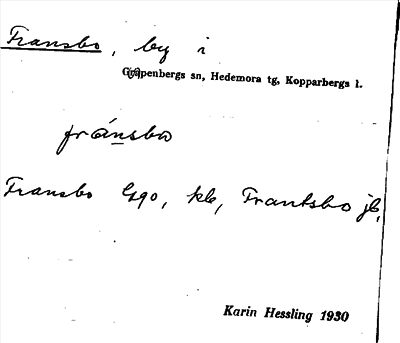 Fransbo, by i
Grüpenbergs sn, Hedemora tg, Kopparbergs l.
fránsbo
Fransbo Gsqo, kb, Frantsbo jb,
Karin Hessling 1930